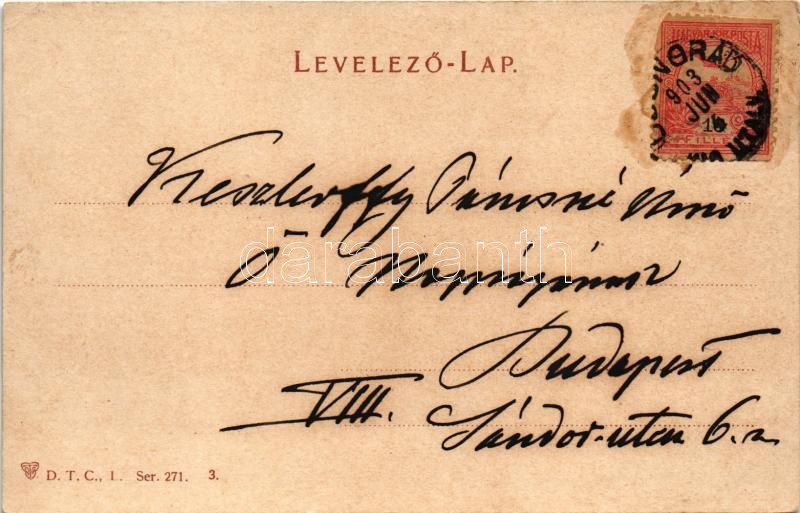 LEVELEZŐ-LAP.
MAGYAR KIR. POSTA
CSONGRÁD
903
JUN
10
FILLÉR
Keszlerffy Jánosné Urnő
Ő Nagyságának
Budapest
VIII. Sándor-utca 6. sz
darabanth
D. T. C., I. Ser. 271. 3.